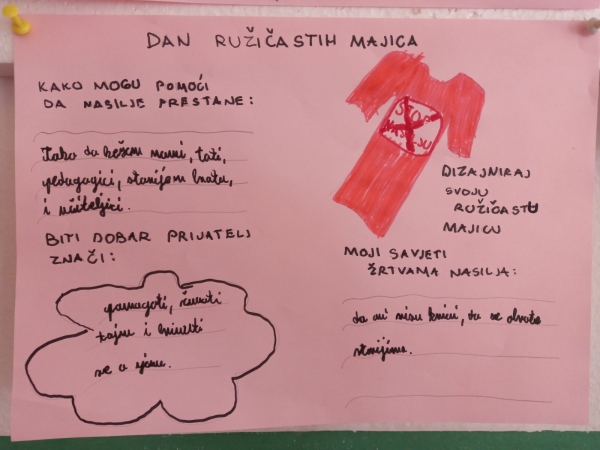 DAN RUŽIČASTIH MAJICA
KAKO MOGU POMOĆI
DA NASILJE PRESTANE:
Tako da kažem mami, tati,
pedagogici, starijem bratu,
i učiteljici.
BITI DOBAR PRIJATELJ
ZNAČI:
pomagati, čuvati
tajnu i brinuti
se o njemu.
STOP
NASILJU
DIZAJNIRAJ
SVOJU
RUŽIČASTU
MAJICU
MOJI SAVJETI
ŽRTVAMA NASILJA:
da oni nisu krivi, da se obrate
starijima.